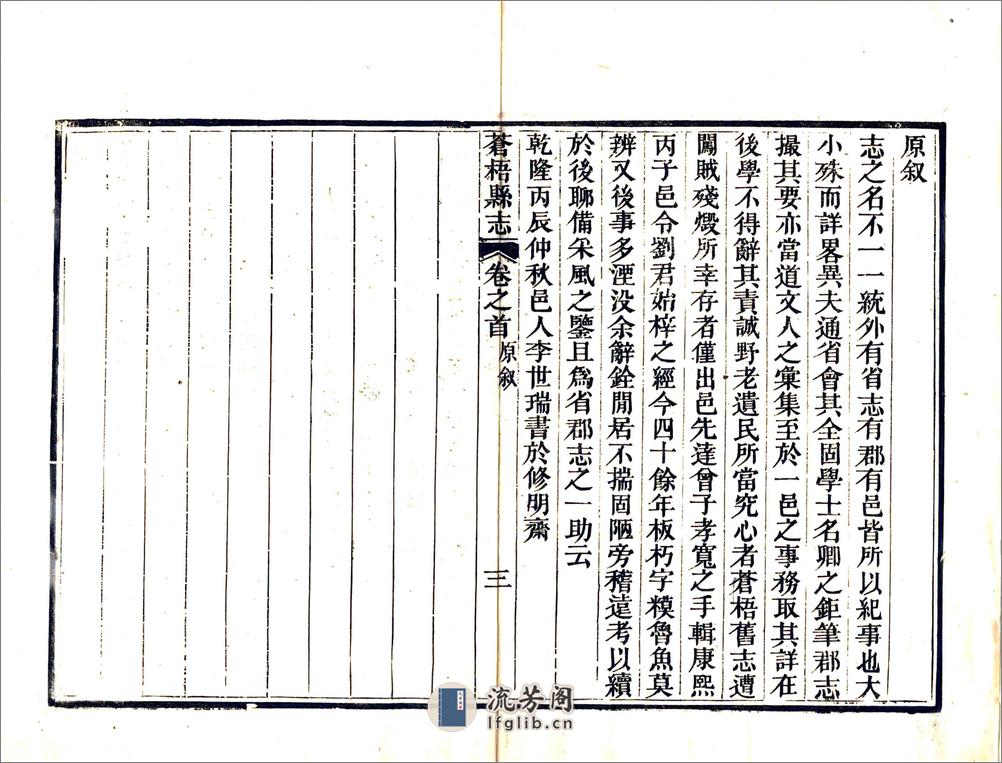 原叙
志之名不一一統外有省志有郡有邑皆所以紀事也大
小殊而詳畧異夫通省會其全固學士名卿之鉅筆郡志
撮其要亦當道文人之彙集至於一邑之事務取其詳在
後學不得辭其責誠野老遺民所當究心者蒼梧舊志遭
闖賊殘燬所幸存者僅出邑先達曾子孝寬之手輯康熙
丙子邑令劉君始梓之經今四十餘年板朽字糢魯魚莫
辨又後事多湮没余辭銓閒居不揣固陋旁稽遠考以續
於後聊備采風之鑒且爲省郡志之一助云
乾隆丙辰仲秋邑人李世瑞書於修明齋
蒼梧縣志 卷之首 原叙 三
流芳阁
lfglib.cn